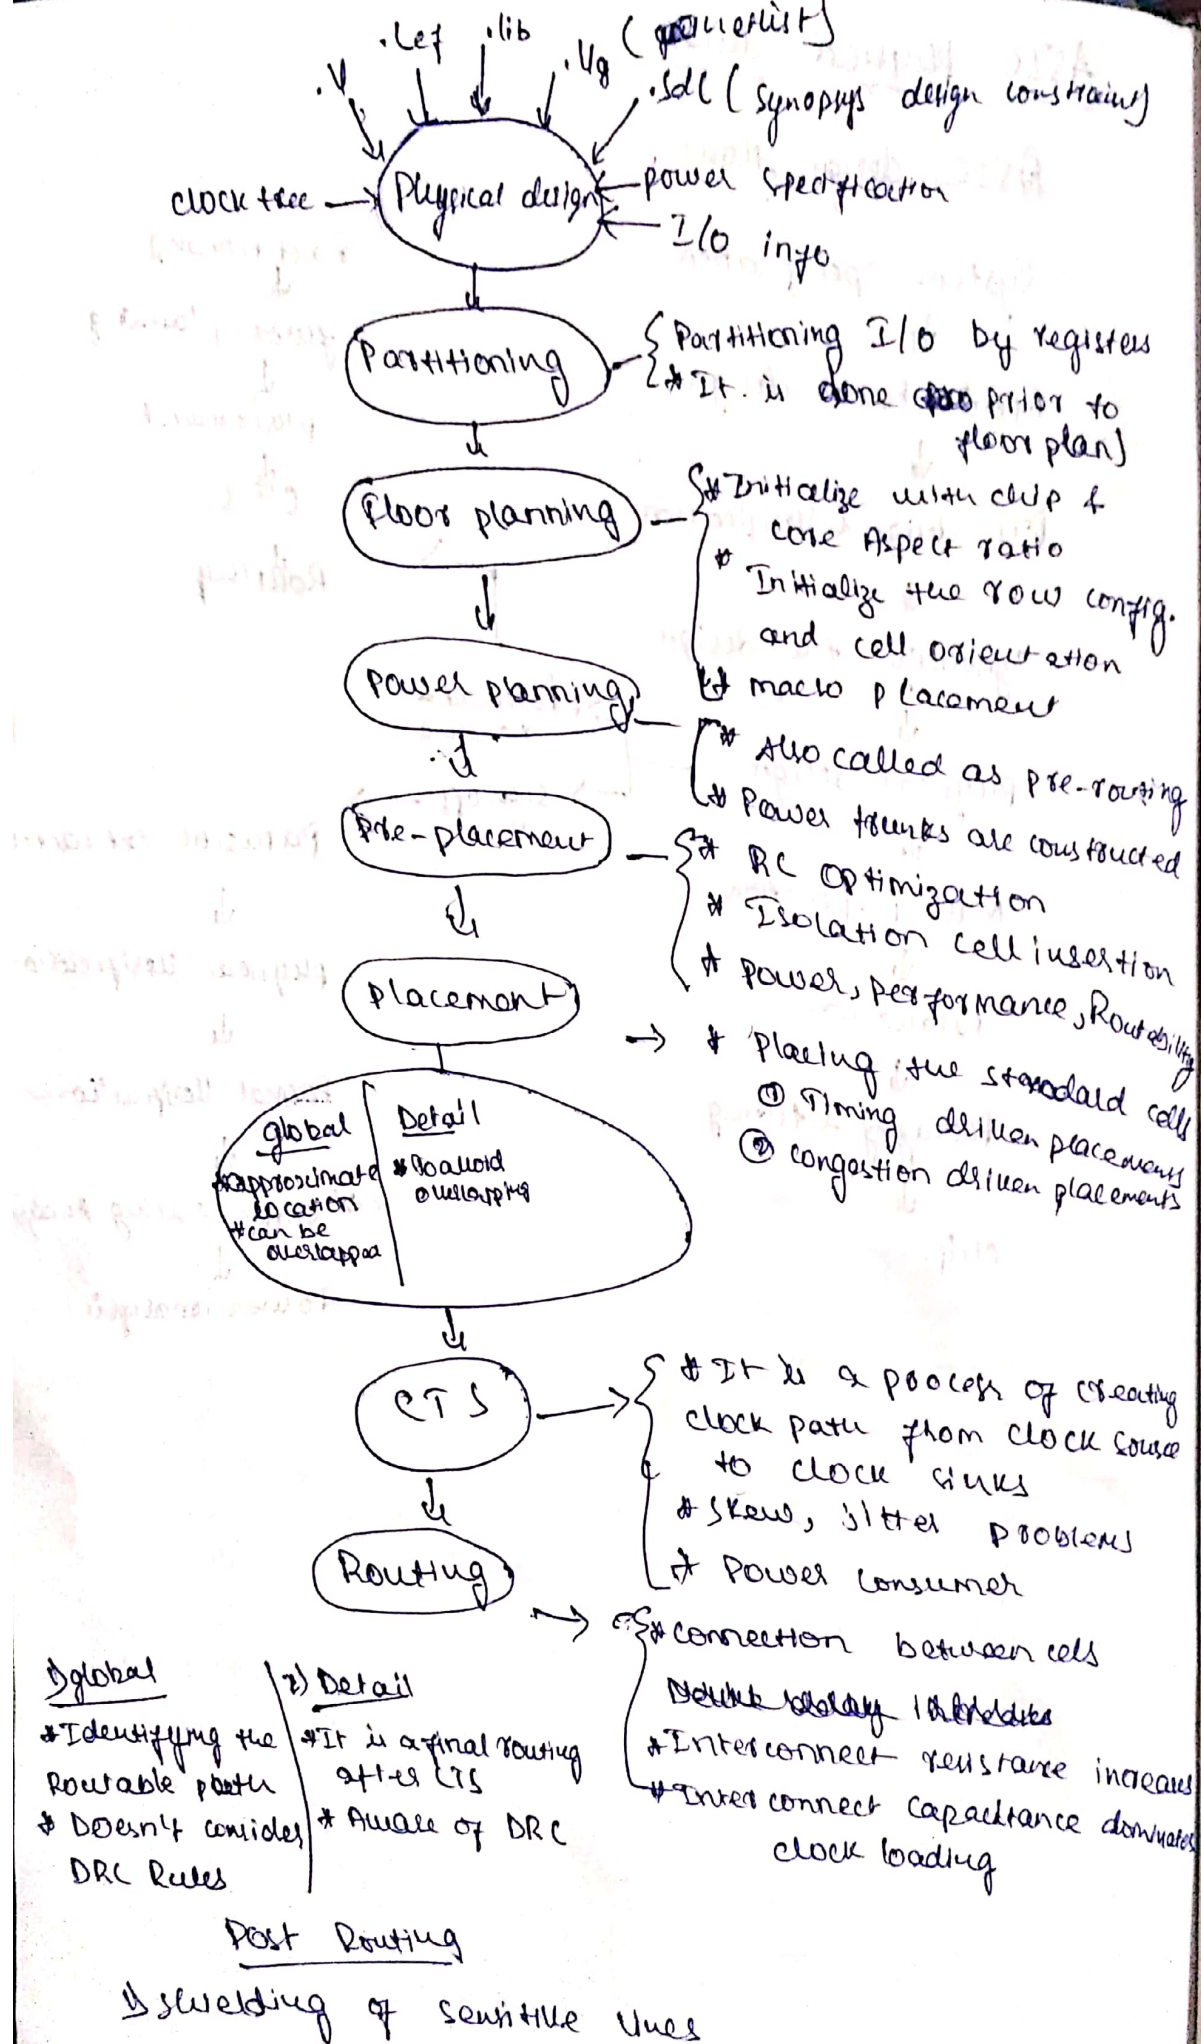 .V
.Lef
.lib
.Vg (
.sdc (synopsys design constraints)
clock tree
Physical design
power specification
I/O info
Partitioning
Partitioning I/O by registers
* It is done prior to
floor plan)
Floor planning
* Initialize with chip &
core Aspect ratio
* Initialize the row config.
and cell orientation
* macro placement
Power planning
* Also called as pre-routing
* Power trunks are constructed
Pre-placement
* RC Optimization
* Isolation cell insertion
* Power, performance, Routability
Placement
* Placing the standard cells
① Timing driven placements
② congestion driven placements
global
*approximate
location
*can be
overlapped
Detail
*To avoid
overlapping
CTS
* It is a process of creating
clock path from clock source
to clock sinks
* Skew, jitter problems
* Power consumer
Routing
* connection between cells
* Interconnect resistance increases
* Inter connect capacitance dominates
clock loading
1) global
* Identifying the
Routable path
* Doesn't consider
DRC Rules
2) Detail
* It is a final routing
after CTS
* Aware of DRC
Post Routing
1) shielding of sensitive lines